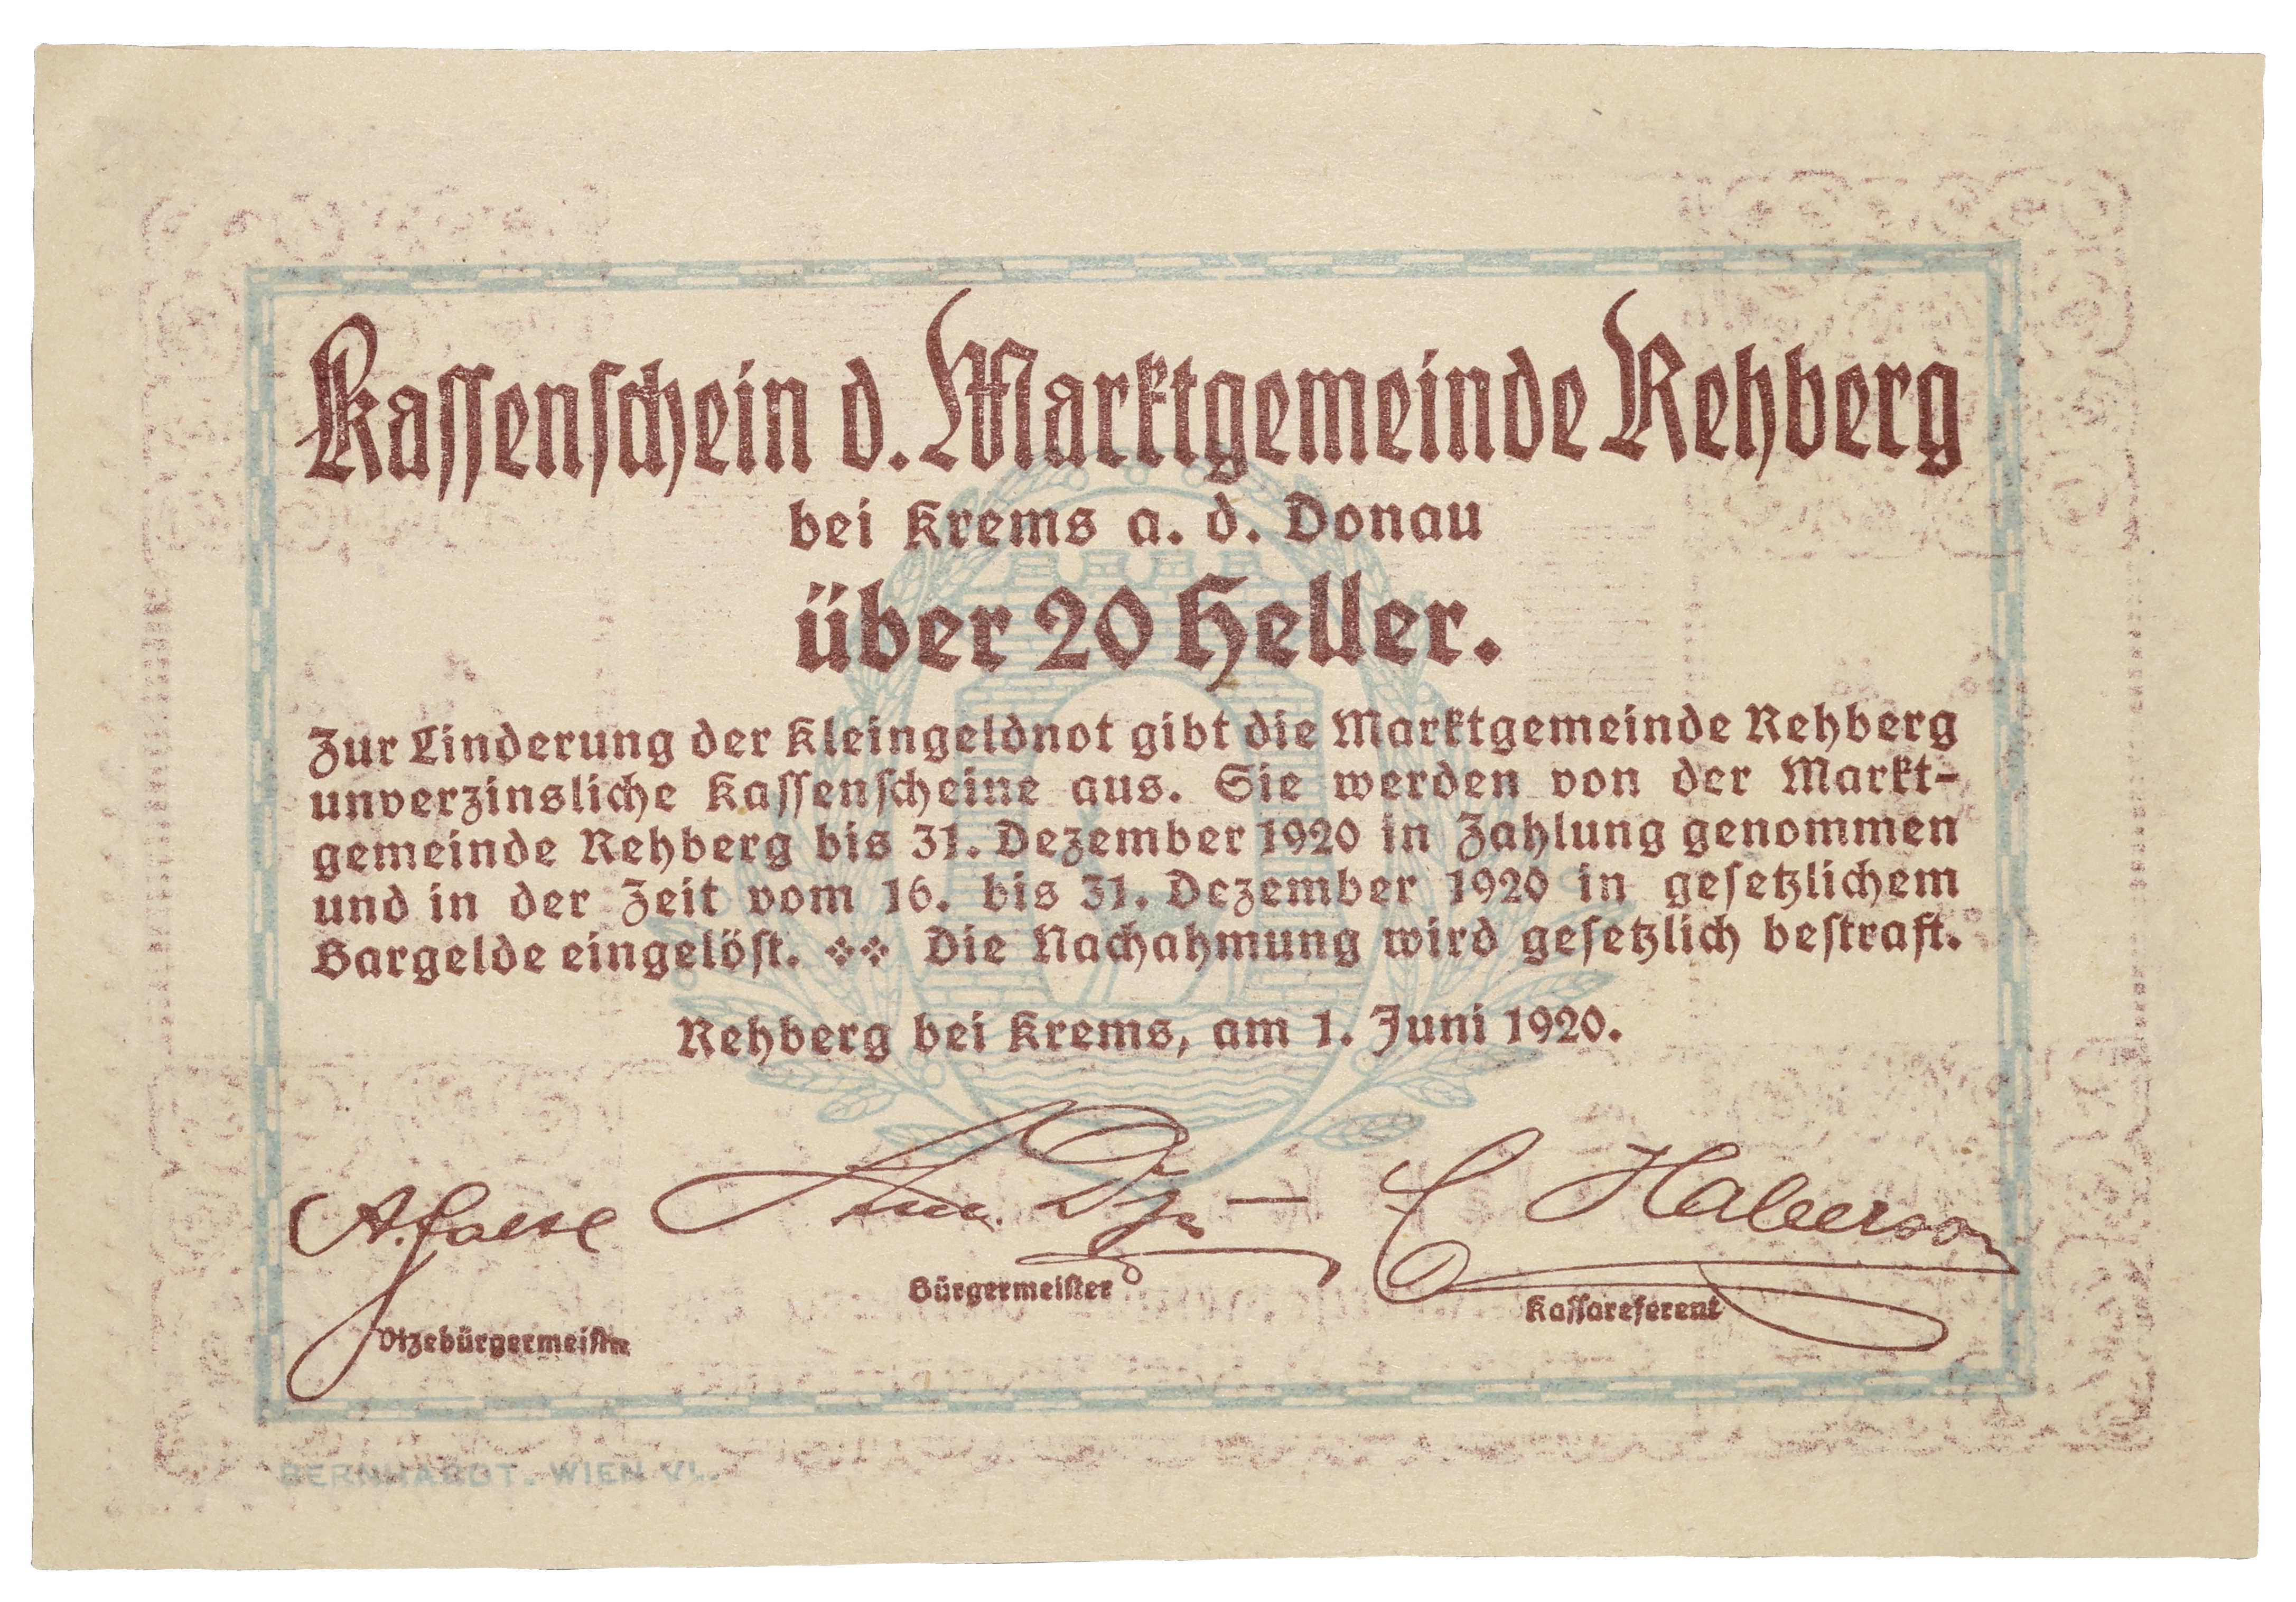 Kassenschein d. Marktgemeinde Rehberg
bei Krems a. d. Donau
über 20 Heller.
Zur Linderung der Kleingeldnot gibt die Marktgemeinde Rehberg
unverzinsliche Kassenscheine aus. Sie werden von der Markt-
gemeinde Rehberg bis 31. Dezember 1920 in Zahlung genommen
und in der Zeit vom 16. bis 31. Dezember 1920 in gesetzlichem
Bargelde eingelöst. Die Nachahmung wird gesetzlich bestraft.
Rehberg bei Krems, am 1. Juni 1920.
A.
C Haberson
Bürgermeister
Kassareferent
Vizebürgermeister
BERNHARDT. WIEN VI.